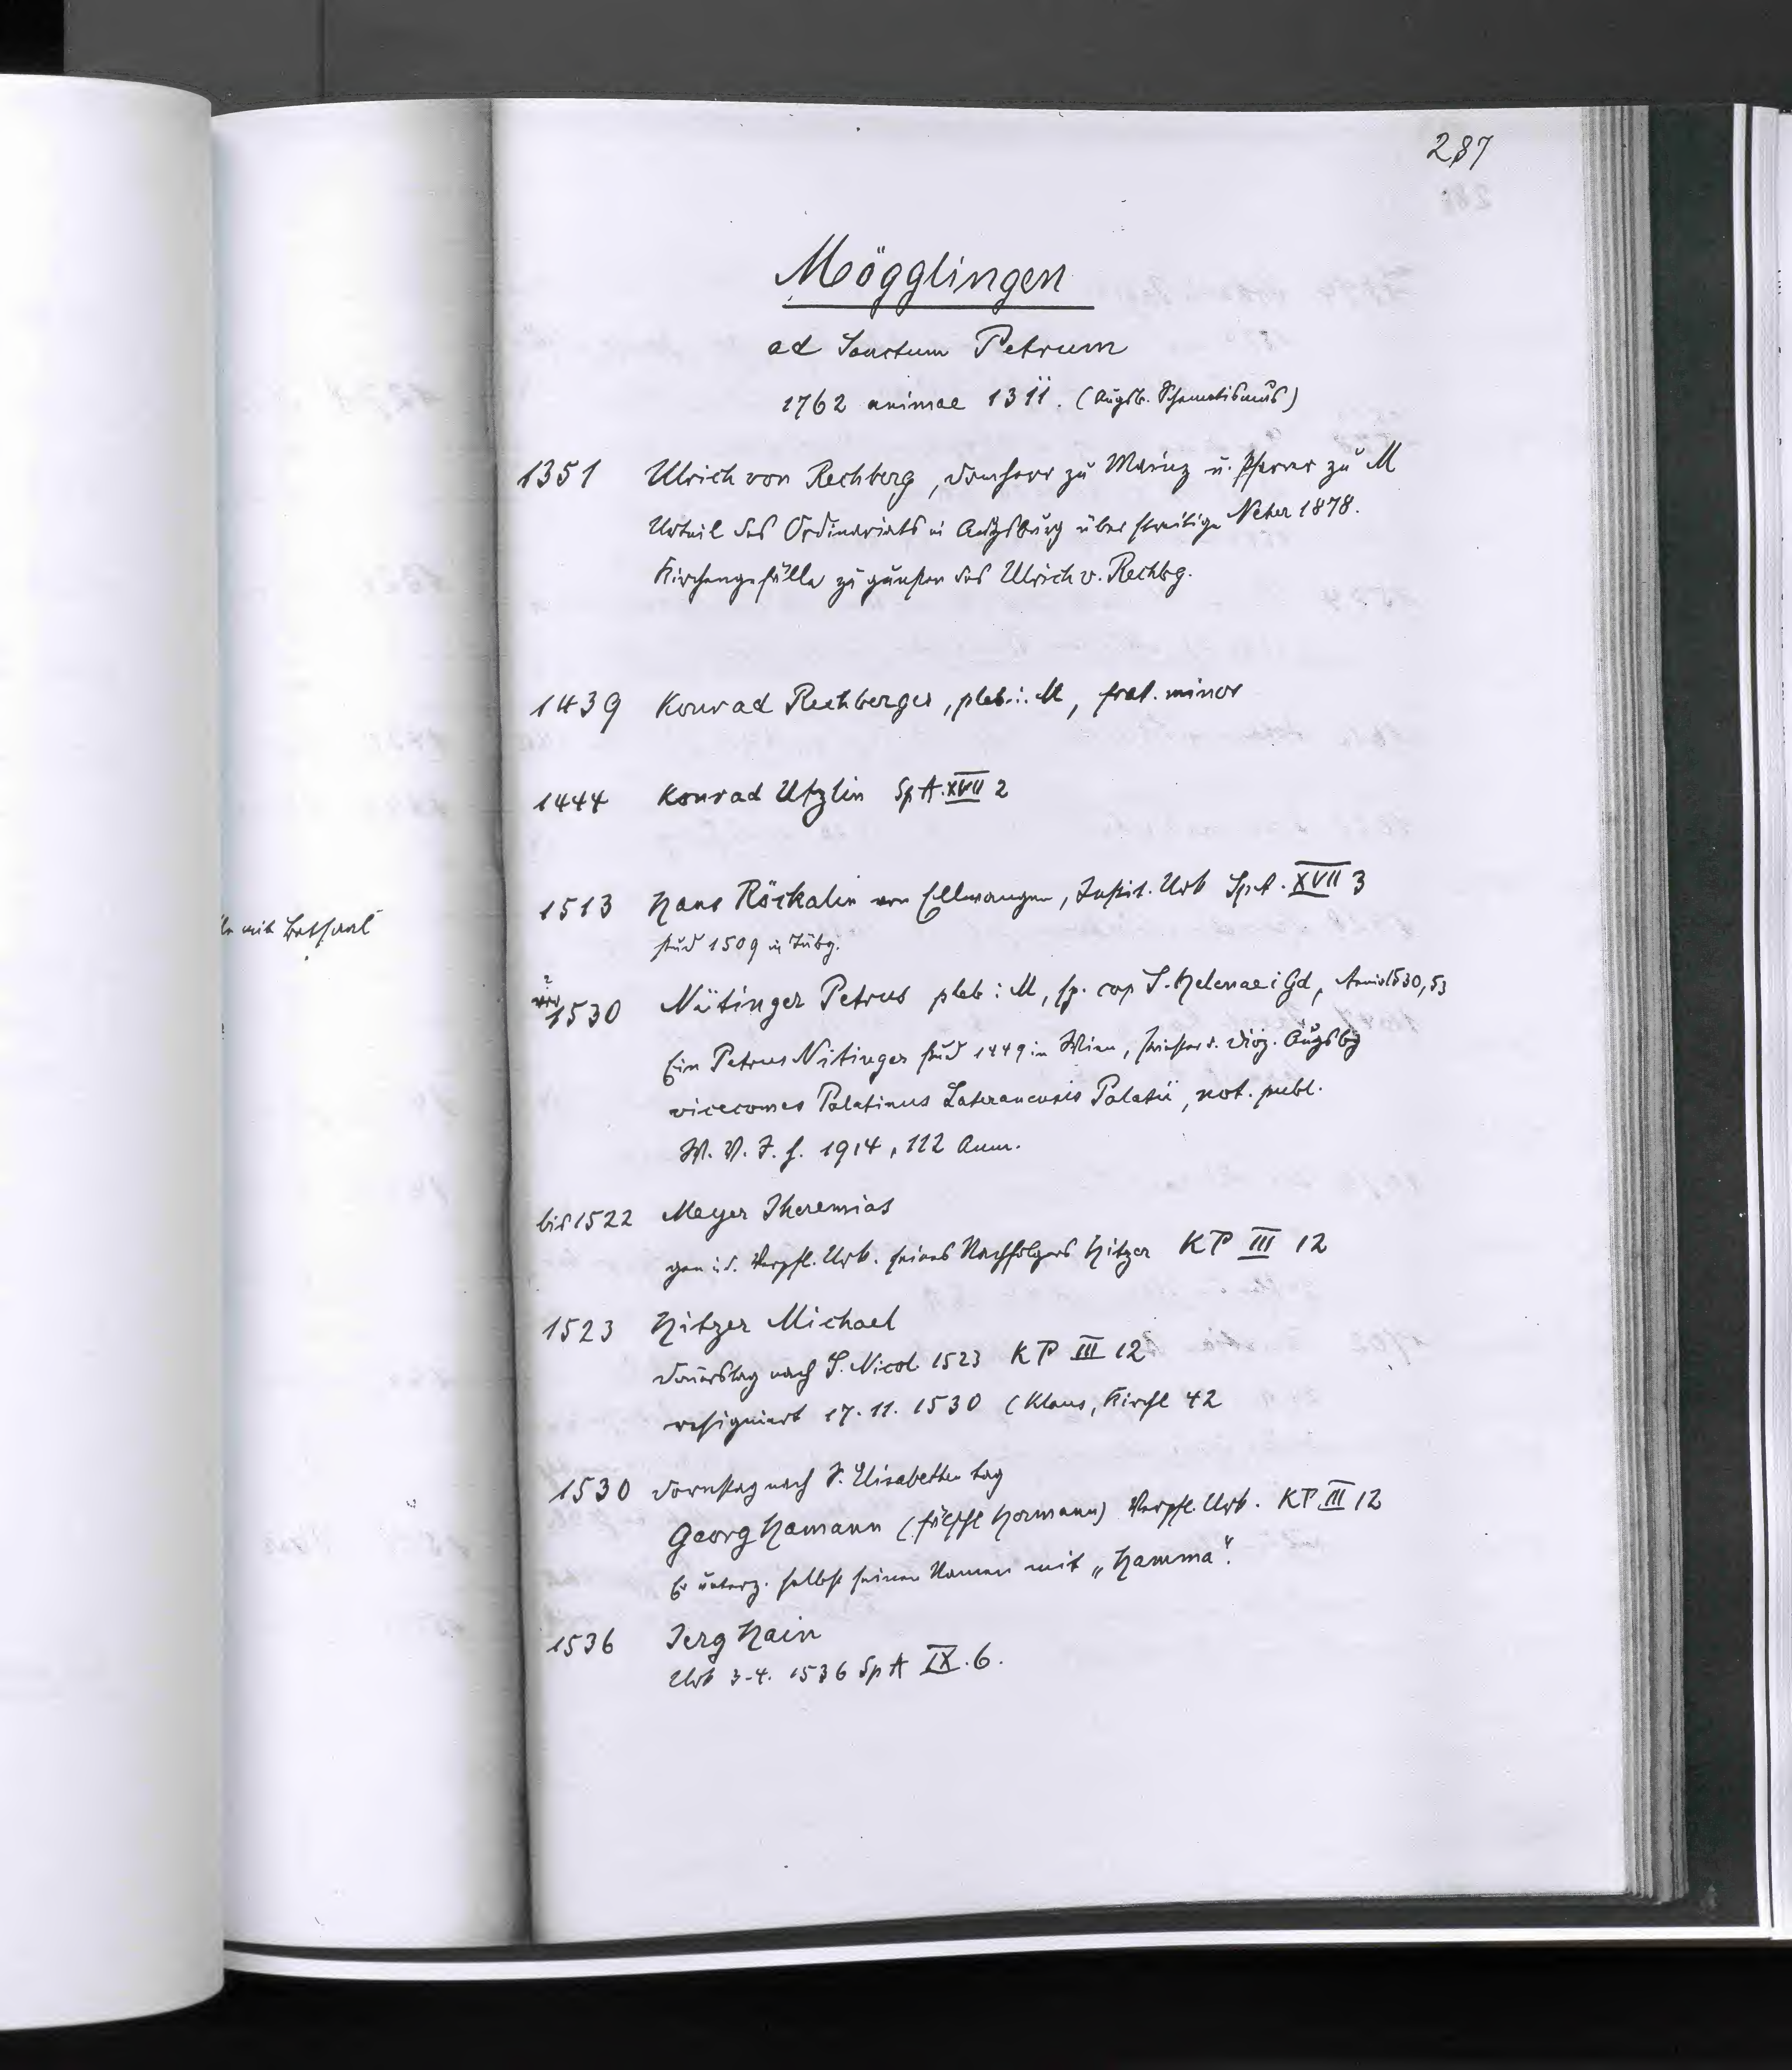 287
Mögglingen
ad Sanctum Petrum
1762 animae 1311. (Augsb. Schematismus)
1351 Ulrich von Rechberg, Domherr zu Mainz u. Pfarrer zu M
Urteil des Ordinariats in Augsburg über streitige Neher 1878.
Kirchengefälle zu gunsten des Ulrich v. Rechbg.
1439 Konrad Rechberger, pleb. i. M, frat. minor
1444 Konrad Utzlin SpA. XVII 2
1513 Hans Röckalin von Ellwangen, Instit. Urk SpA. XVII 3
stud 1509 in Tübg.
? vor 1530 Nütinger Petrus pleb i M, sp. cap S. Helenae i Gd, 1530, 53
Ein Petrus Nitinger stud 1449 in Wien, Priester d. Diöz. Augsbg
vicecomes Palatinus Lateranensis Palatii, not. publ.
W. V. J. H. 1914, 112 Anm.
bis 1522 Meyer Iheremias
gen i. d. Verpfl. Urk. seines Nachfolgers Hitzer KP III 12
1523 Hitzer Michael
Donerstag nach S. Nicol 1523 KP III 12
resigniert 17. 11. 1530 (Klaus, Kirchl 42
1530 Dornstag nach S. Elisabethen tag
Georg Hamann (fälschl Hormann) Verpfl. Urk. KP III 12
Er unterz. selbst seinen Namen mit „Hamma“.
1536 Jerg Hain
Urk 3.4. 1536 SpA IX. 6.
mit Betsaal